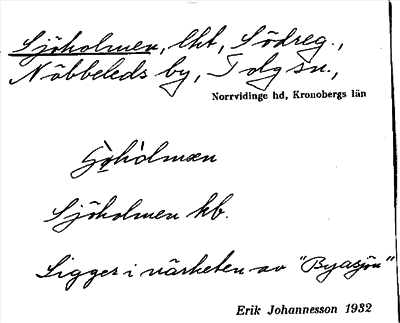 Sjöholmen, lht, Södreg.,
Nöbbeleds by, Tolg sn.,
Norrvidinge hd, Kronobergs län
Sjöholmen kb.
Ligger i närheten av "Byasjön"
Erik Johannesson 1932